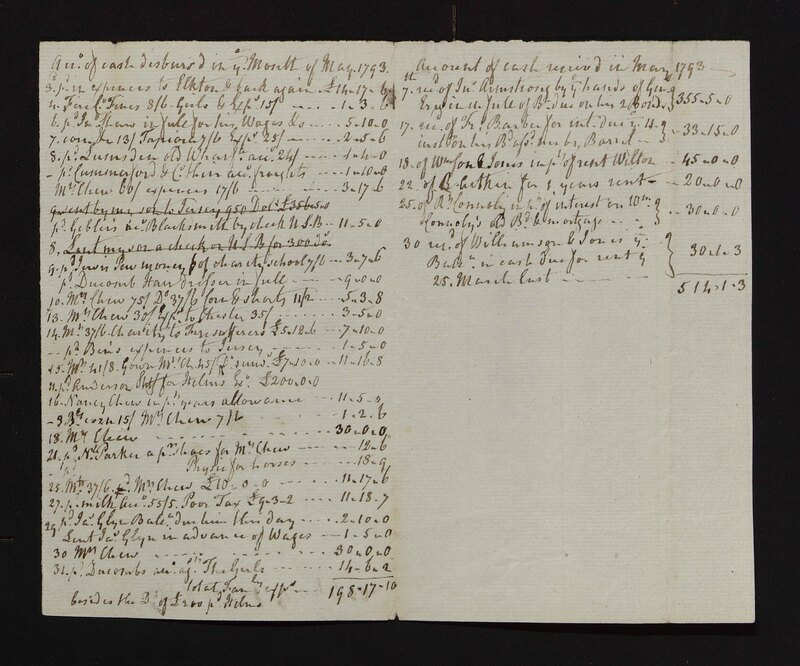 Acc.t of cash disburs'd in y.e Month of May. 1793.
3. p.d in expences to Elkton & back again - £14-17-6
4. Fire Co. Fines 8/6 Girls & Exp.s 15/ ---- 1-3-6
6. p.d Jn.o Shaw in full for his Wages &c -- 5-10-0
7. 13/ Tapioca 7/6 Exp.s 25/ ---- 2-5-6
8. p.d Lumsden old Wharf acc.t 24/ -- 1-4-0
- p.d Cummerford & C.o their acc.t freights -- 1-10-0
M.rs Chew 60/ expences 17/6 ---- 3-17-6
9 sent by my son to Jersey 950 Dol.s £356-5-0
p.d Gibler's acc.t Blacksmith by check U.S.B - 11-5-0
8. Lent my son a check on U.S.B for 300 Do.s
9. p.d Pew money of charity school 7/6 - 3-7-6
p.d Ducomb Hair Dresser in full --- 9-0-0
10. M.rs Chew 75/ D.o 37/6 Corn & shorts 11/2 -- 5-3-8
13. M.rs Chew 30/ Exp.s to Chester 35/ --- 3-5-0
14. M.rs 37/6 Charity to Fire sufferers £5-12-6 -- 7-10-0
-- p.d Ben's expences to Jersey ---- 1-5-0
25. M.rs 41/8. Gown M.rs Ch. 45/ D.o £7-10-0 --- 11-16-8
11. p.d Anderson for Helms Ex.r £200-0-0
16. Nancy Chew in p.t years allowance -- 11-5-0
- 3 15/ M.rs Chew 7/6 --- 1-2-6
18. M.rs Chew -------- 30-0-0
21. p.d N. Parker a p.r shoes for M.rs Chew --- 12-6
p.d Physic for horses ---- 18-9
25. M.rs 37/6. p.d M.rs Chew £10-0-0 --- 11-17-6
27. p. milk acc.t 55/5. Poor Tax £9-3-2 --- 11-18-7
29. p.d Ja.s Glyn Bal.a due him this day --- 2-10-0
Lent Ja.s Glyn in advance of Wages -- 1-5-0
30 M.rs Chew -------- 30-0-0
31. p. Ducombs acc.t ag.t The Girls --- 14-0-2
Total Fam.y exp.s --- 198-17-10
besides the D.o of £200 p.d Helms
Account of cash received in May 1793
7. rec.d of Jn.o Armstrong by y.e hands of
in full of B.e due on his 2 Bonds } 355-5-0
17. rec.d of Barber for int. due y.e 14
on his B. by Barrel } - 33-15-0
18. of W.m Son & Jones in p.t of rent Wilton -- 45-0-0
22. of R. Cuthen for 1 years rent - 20-0-0
25. of R. Connoly in p.t of interest on
Connoly's B.d & mortgage } -- 30-0-0
30 rec.d of Williamson & Jones y.e
Bal.e in cash due for rent y.e
25. March last ------ } 30-1-3
514-1-3